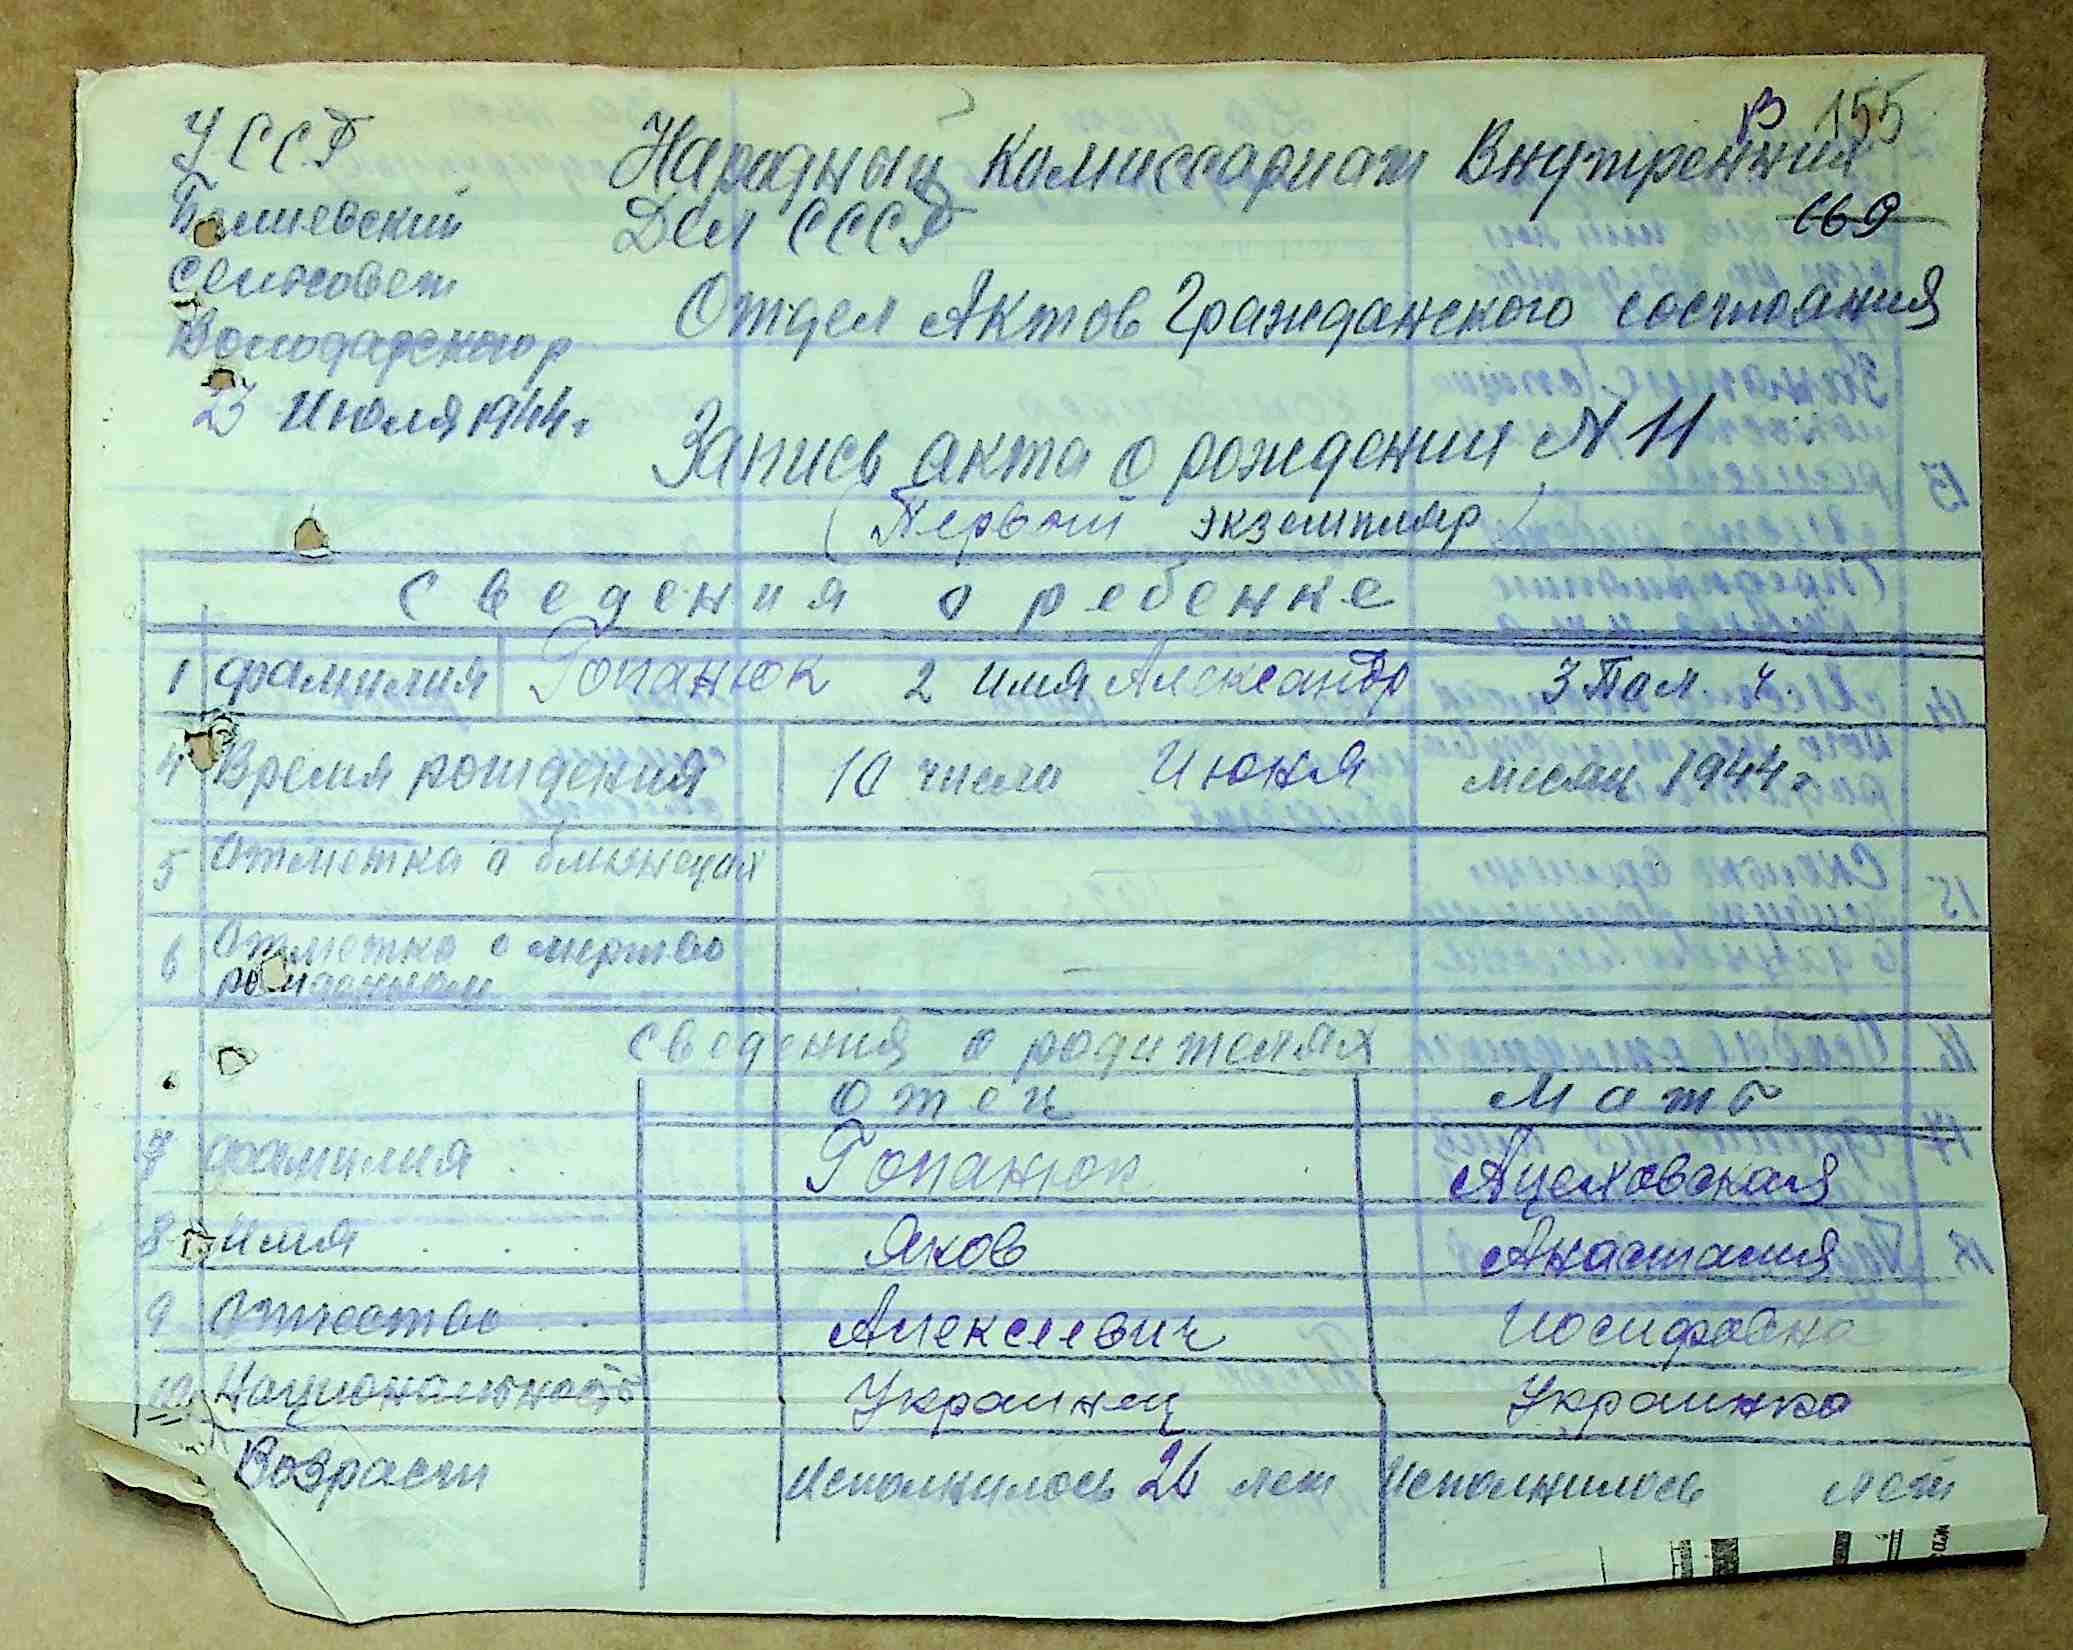 В 155
УССР
Народный Комиссариат Внутренних
Дел СССР
669
сельсовет
Отдел Актов Гражданского состояния
Володарского р
23 Июля 1944 г.
Запись акта о рождении № 11
(Первый экземпляр)
Сведения о ребенке
1 фамилия Гопанюк 2 имя Александр 3 Пол. ч.
4 Время рождения 10 числа Июня месяц 1944 г.
5 Отметка о близнецах —
6 Отметка о мертво
рожденном —
Сведения о родителях
Отец Мать
7 фамилия Гопанюк Ацеховская
8 имя Яков Анастасия
9 Отчество Алексеевич Иосифовна
10 Национальность Украинец Украинка
Возраст Исполнилось 26 лет Исполнилось лет